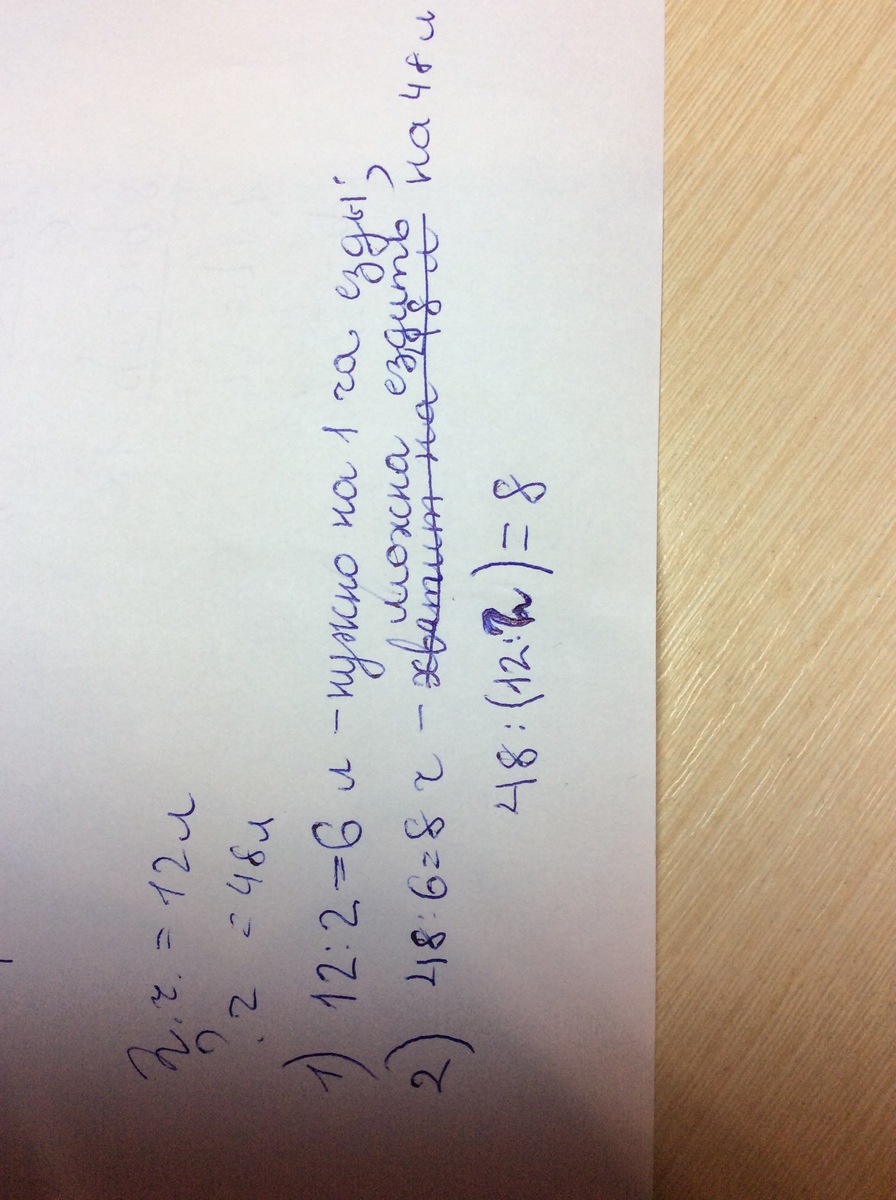 2 ч. = 12 л
? ч = 48 л
1) 12:2=6 л - нужно на 1 ча езды;
можна ездить на 48 л
2) 48:6=8 ч - хватит на 48 л
48:(12:2)=8